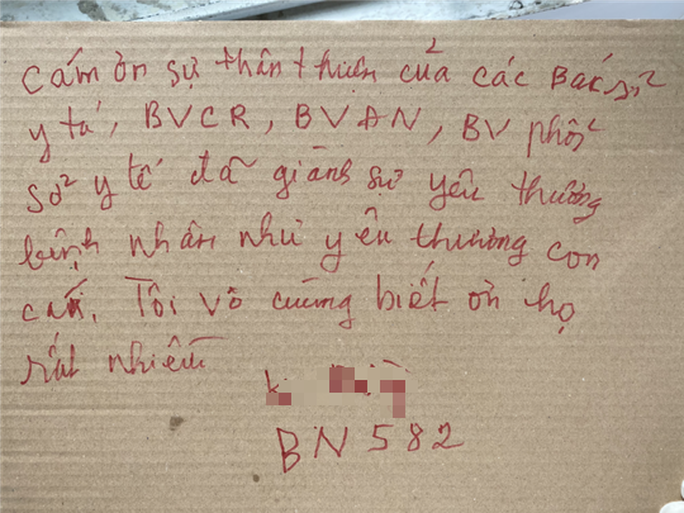 Cám ơn sự thân thiện của các Bác sỉ
y tá, BVCR, BVAN, BV phổi
sở y tế đã giành sự yêu thương
bệnh nhân như yêu thương con
cái. Tôi vô cùng biết ơn họ
rất nhiều
BN 582